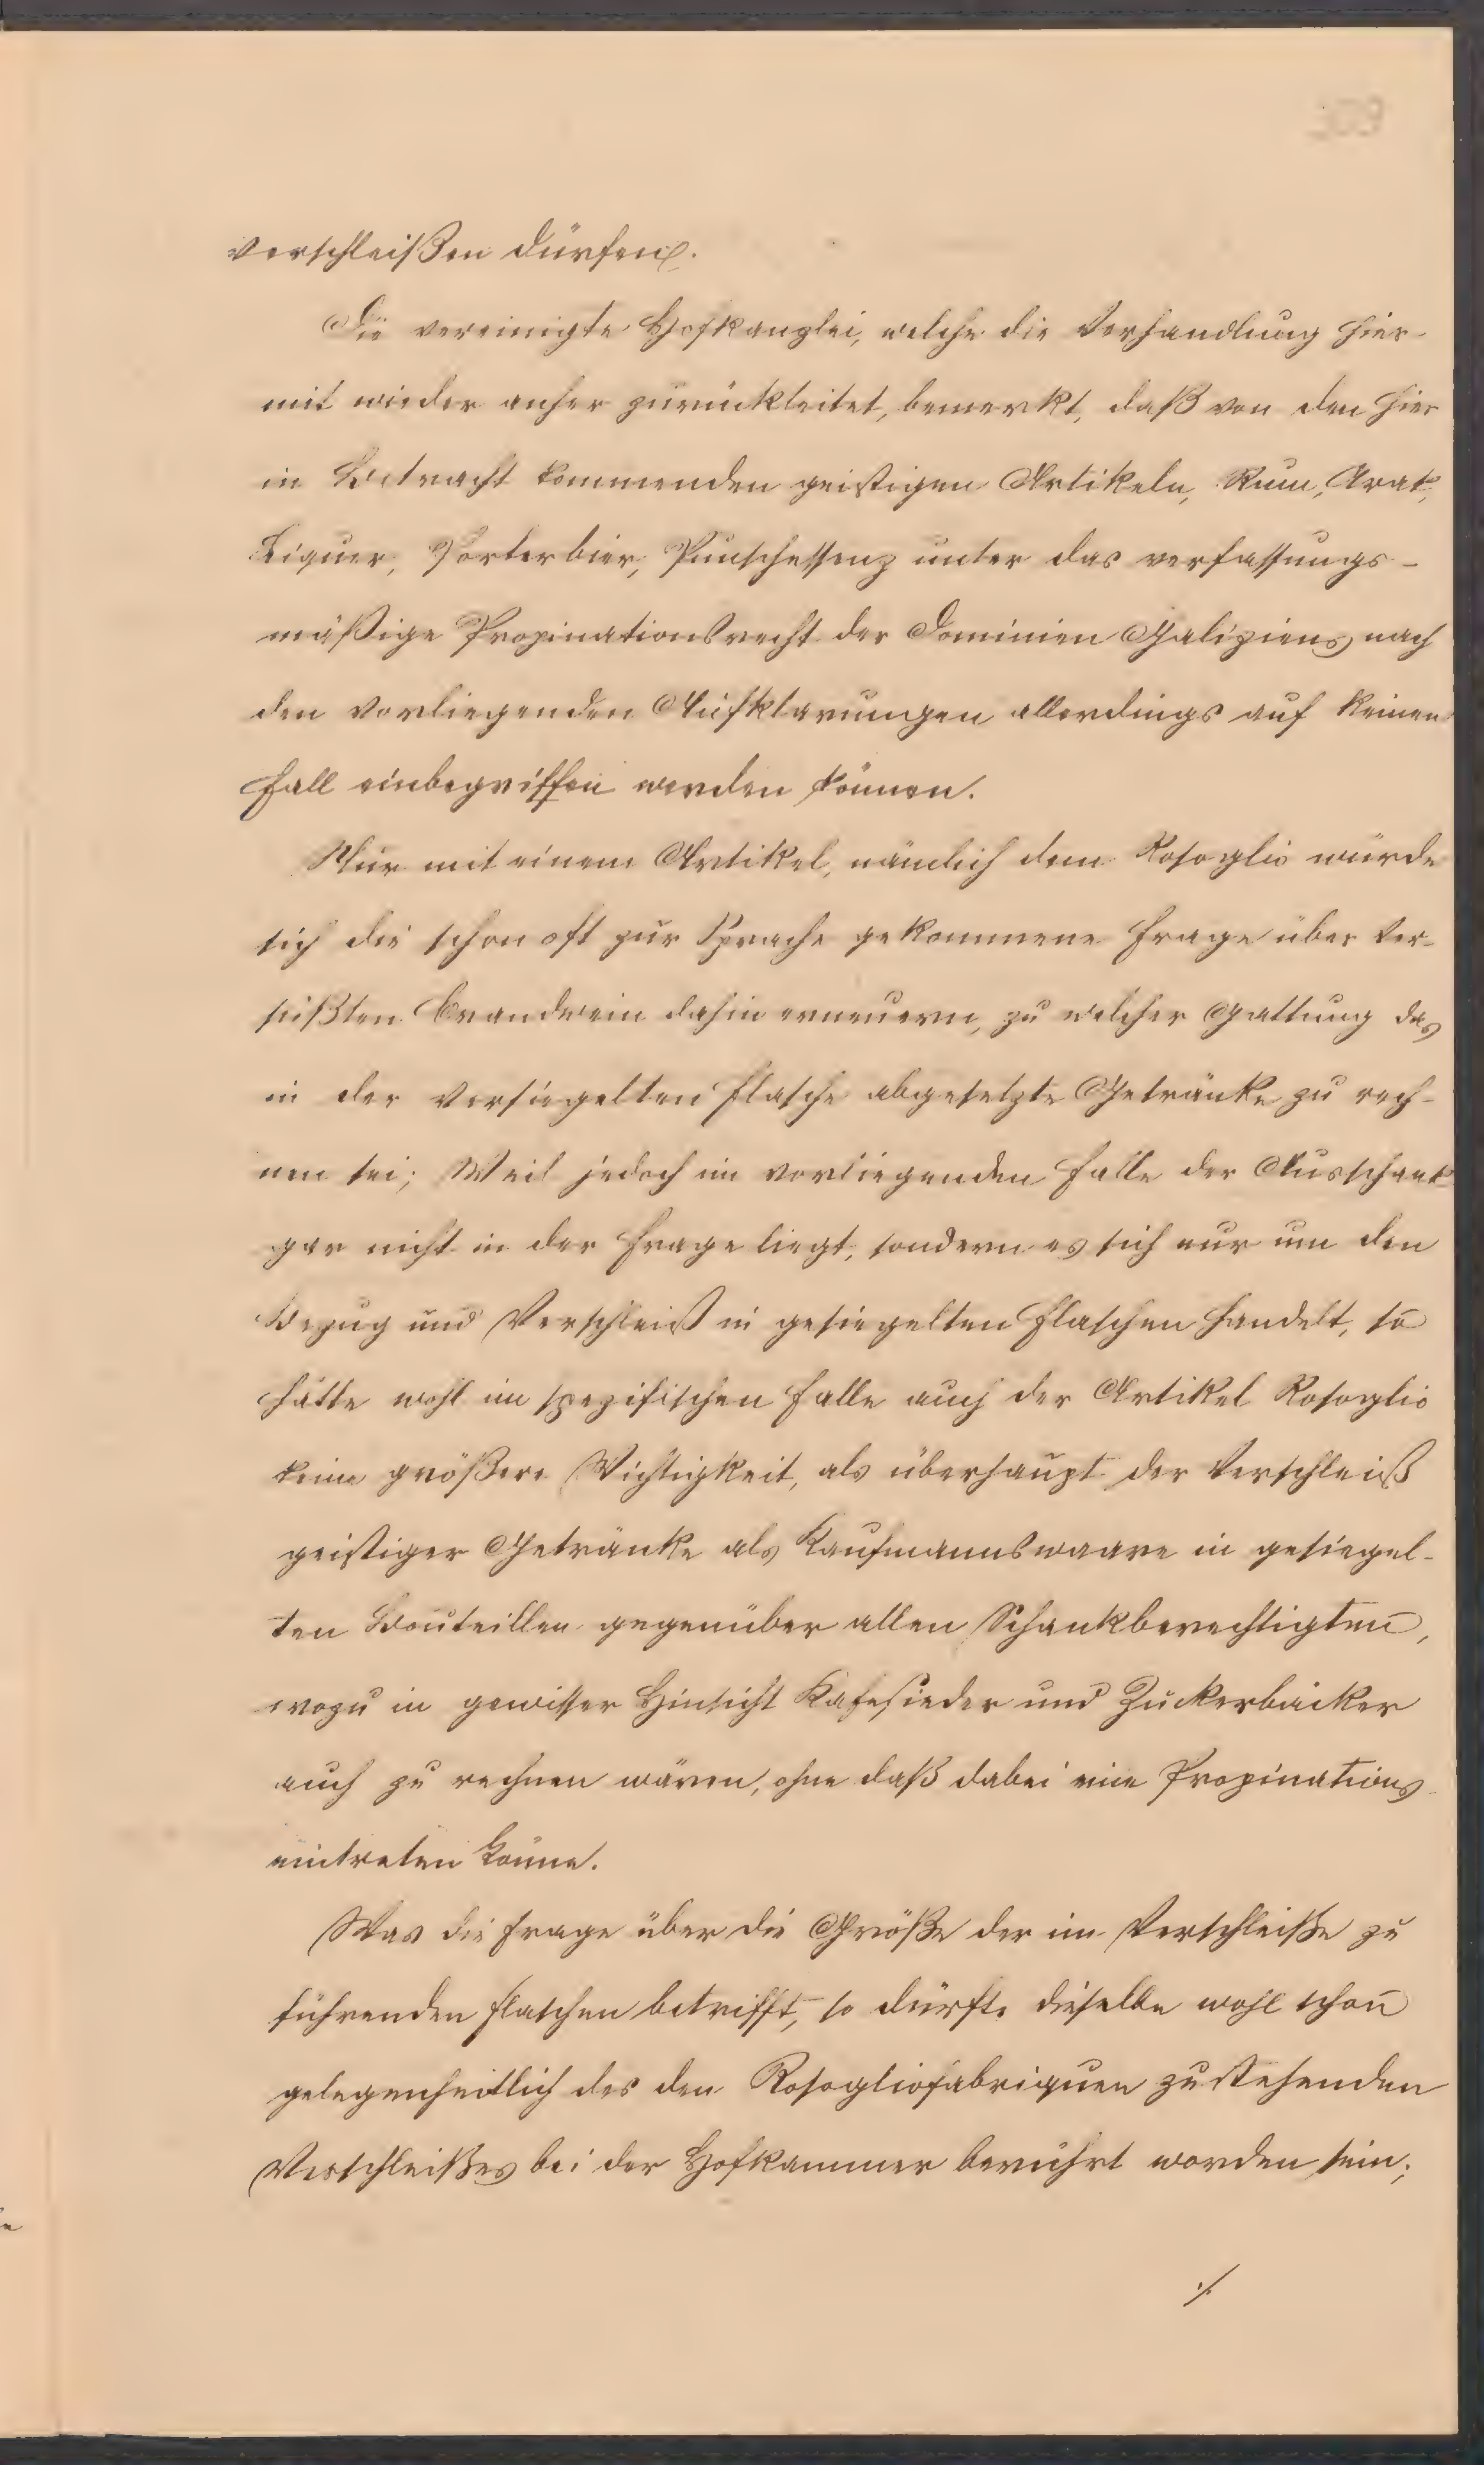 309
verschleißen dürfen.
Die vereinigte Hofkanzlei, welche die Verhandlung hier-
mit wieder anher zurückleitet, bemerkt, daß von den hier
in Betracht kommenden geistigen Artikeln, Rum, Arak,
Liquer, Porterbier, Punschessenz unter das verfassungs-
mäßige Propinationsrecht der Dominien Galiziens nach
den vorliegenden Aufklärungen allerdings auf keinen
Fall einbegriffen werden können.
Nur mit einem Artikel, nämlich dem Rosoglio würde
sich die schon oft zur Sprache gekommene Frage über ver-
süßten Brandwein dahin erneuern, zu welcher Gattung das
in der versiegelten Flasche abgesetzte Getränke zu rech-
nen sei; Weil jedoch im vorliegenden Falle der Ausschank
gar nicht in der Frage liegt, sondern es sich nur um den
Bezug und Verschleiß in gesiegelten Flaschen handelt, so
hätte wohl im spezifischen Falle auch der Artikel Rosoglio
keine größere Wichtigkeit, als überhaupt der Verschleiß
geistiger Getränke als Kaufmannswaare in gesiegel-
ten Bouteillen gegenüber allen Schankberechtigten,
wozu in gewisser Hinsicht Kafesieder und Zuckerbäcker
auch zu rechnen wären, ohne daß dabei eine Propinations-
eintreten könne.
Was die Frage über die Größe der im Verschleiße zu
führenden Flaschen betrifft, so dürfte dieselbe wohl schon
gelegenheitlich des den Rosogliofabriquen zustehenden
Verschleißes bei der Hofkammer berührt worden sein;
./.